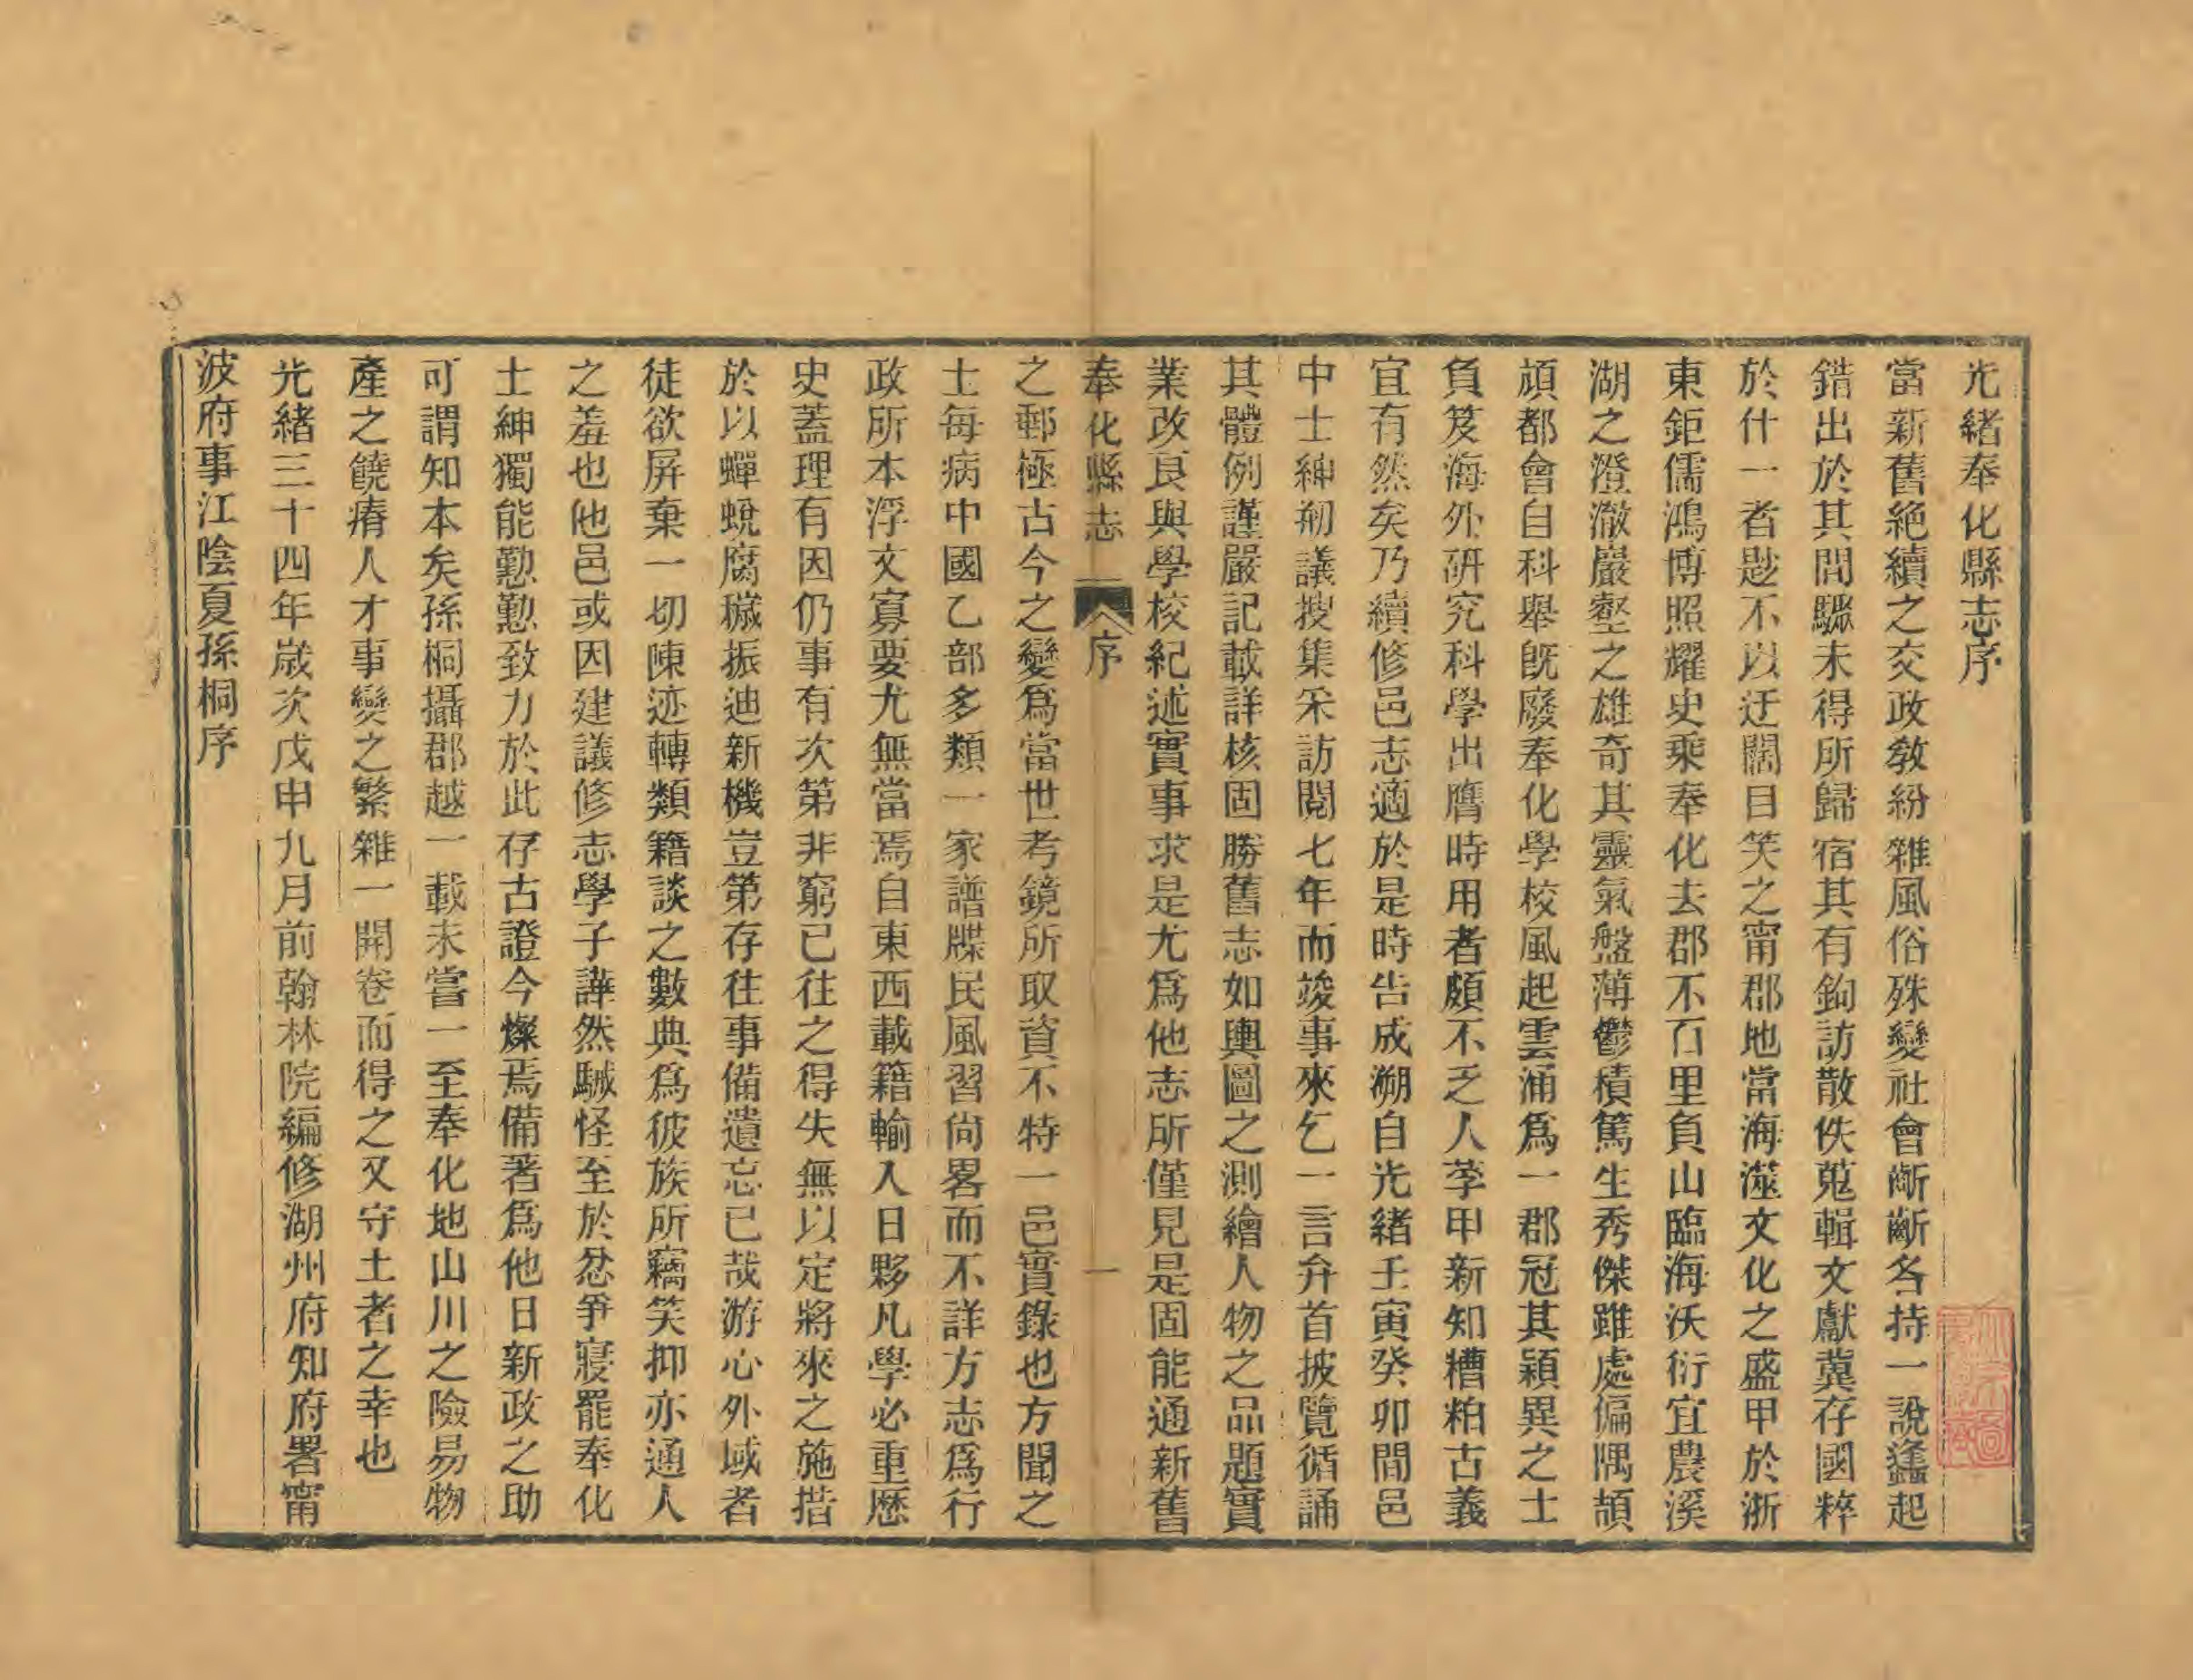 光緒奉化縣志序
當新舊絕續之交政敎紛雜風俗殊變社會齗齗各持一說蠭起
錯出於其間驟未得所歸宿其有鉤訪散佚蒐輯文獻冀存國粹
於什一者尟不以迂闊目笑之甯郡地當海澨文化之盛甲於浙
東鉅儒鴻博照耀史乘奉化去郡不百里負山臨海沃衍宜農溪
湖之澄澈巖壑之雄奇其靈氣盤薄鬱積篤生秀傑雖處偏隅頡
頏都會自科舉旣廢奉化學校風起雲涌爲一郡冠其穎異之士
負笈海外硏究科學出膺時用者頗不乏人荸甲新知糟粕古義
宜有然矣乃續修邑志適於是時告成溯自光緒壬寅癸卯間邑
中士紳剏議搜集采訪閱七年而竣事來乞一言弁首披覽循誦
其體例謹嚴記載詳核固勝舊志如輿圖之測繪人物之品題實
業改良與學校紀述實事求是尤爲他志所僅見是固能通新舊
奉化縣志 序 一
之郵極古今之變爲當世考鏡所取資不特一邑實錄也方聞之
士每病中國乙部多類一家譜牒民風習尙畧而不詳方志爲行
政所本浮文寡要尤無當焉自東西載籍輸入日夥凡學必重歷
史蓋理有因仍事有次第非窮已往之得失無以定將來之施措
於以蟬蛻腐穢振迪新機豈第存往事備遺忘已哉游心外域者
徒欲屏棄一切陳迹轉類籍談之數典爲彼族所竊笑抑亦通人
之羞也他邑或因建議修志學子譁然駴怪至於忿爭寢罷奉化
士紳獨能懃懃致力於此存古證今燦焉備著爲他日新政之助
可謂知本矣孫桐攝郡越一載未嘗一至奉化地山川之險易物
產之饒瘠人才事變之繁雜一開卷而得之又守土者之幸也
光緒三十四年歲次戊申九月前翰林院編修湖州府知府署甯
波府事江陰夏孫桐序